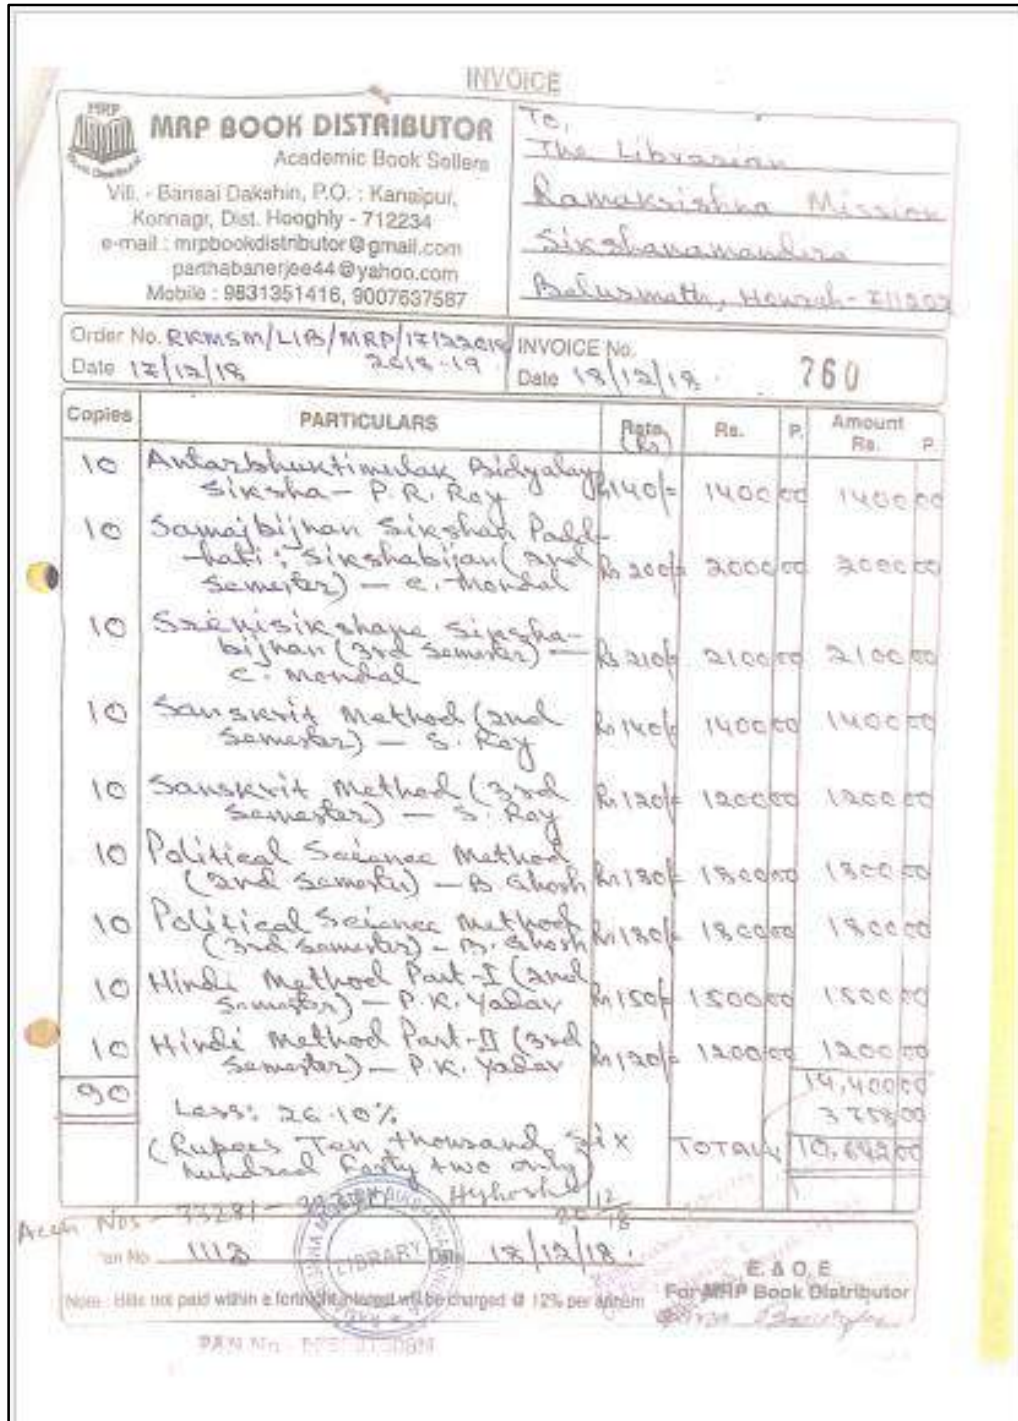 INVOICE
MRP
MRP BOOK DISTRIBUTOR
Academic Book Sellers
Vill. - Bansai Dakshin, P.O. : Kanaipur,
Konnagr, Dist. Hooghly - 712234
e-mail : mrpbookdistributor@gmail.com
parthabanerjee44@yahoo.com
Mobile : 9831351416, 9007637587
To,
The Librarian
Ramakrishna Mission
Sikshanamandira
Belurmath, Howrah - 711202
Order No. RKMSM/LIB/MRP/17122018
2018-19
Date 17/12/18
INVOICE No. 760
Date 18/12/18.
Copies PARTICULARS Rate (Rs) Rs. P. Amount Rs. P.
10 Antarbhuktimulak Bidyalay
Siksha - P. R. Roy Rs 140/= 1400 00 1400 00
10 Samajbijnan Sikshan Padd-
-hati : Sikshabijan (2nd
Semester) - C. Mondal Rs 200/= 2000 00 2000 00
10 Srenisikshane Siksha-
bijnan (3rd Semester) -
C. Mondal Rs 210/= 2100 00 2100 00
10 Sanskrit Method (2nd
Semester) - S. Roy Rs 140/= 1400 00 1400 00
10 Sanskrit Method (3rd
Semester) - S. Roy Rs 120/= 1200 00 1200 00
10 Political Science Method
(2nd Semester) - B Ghosh Rs 180/= 1800 00 1800 00
10 Political Science Method
(3rd Semester) - B. Ghosh Rs 180/= 1800 00 1800 00
10 Hindi Method Part-I (2nd
Semester) - P.K. Yadav Rs 150/= 1500 00 1500 00
10 Hindi Method Part-II (3rd
Semester) - P.K. Yadav Rs 120/= 1200 00 1200 00
90 14,400 00
Less: 26.10% 3758 00
(Rupees Ten thousand Six
hundred forty two only) TOTAL 10,642 00
Accn Nos - 73281 -
1113 LIBRARY 18/12/18.
E. & O. E
For MRP Book Distributor
Note : Bills not paid within a fortnight interest will be charged @ 12% per annum
PAN No -